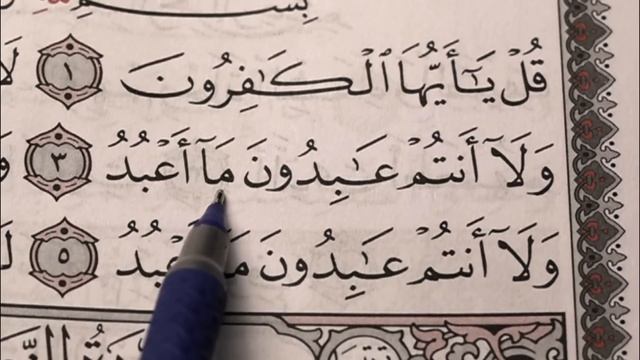 بِسْمِ
قُلْ يَـٰٓأَيُّهَا ٱلْكَـٰفِرُونَ ١ لَآ
وَلَآ أَنتُمْ عَـٰبِدُونَ مَآ أَعْبُدُ ٣
وَلَآ أَنتُمْ عَـٰبِدُونَ مَآ أَعْبُدُ ٥